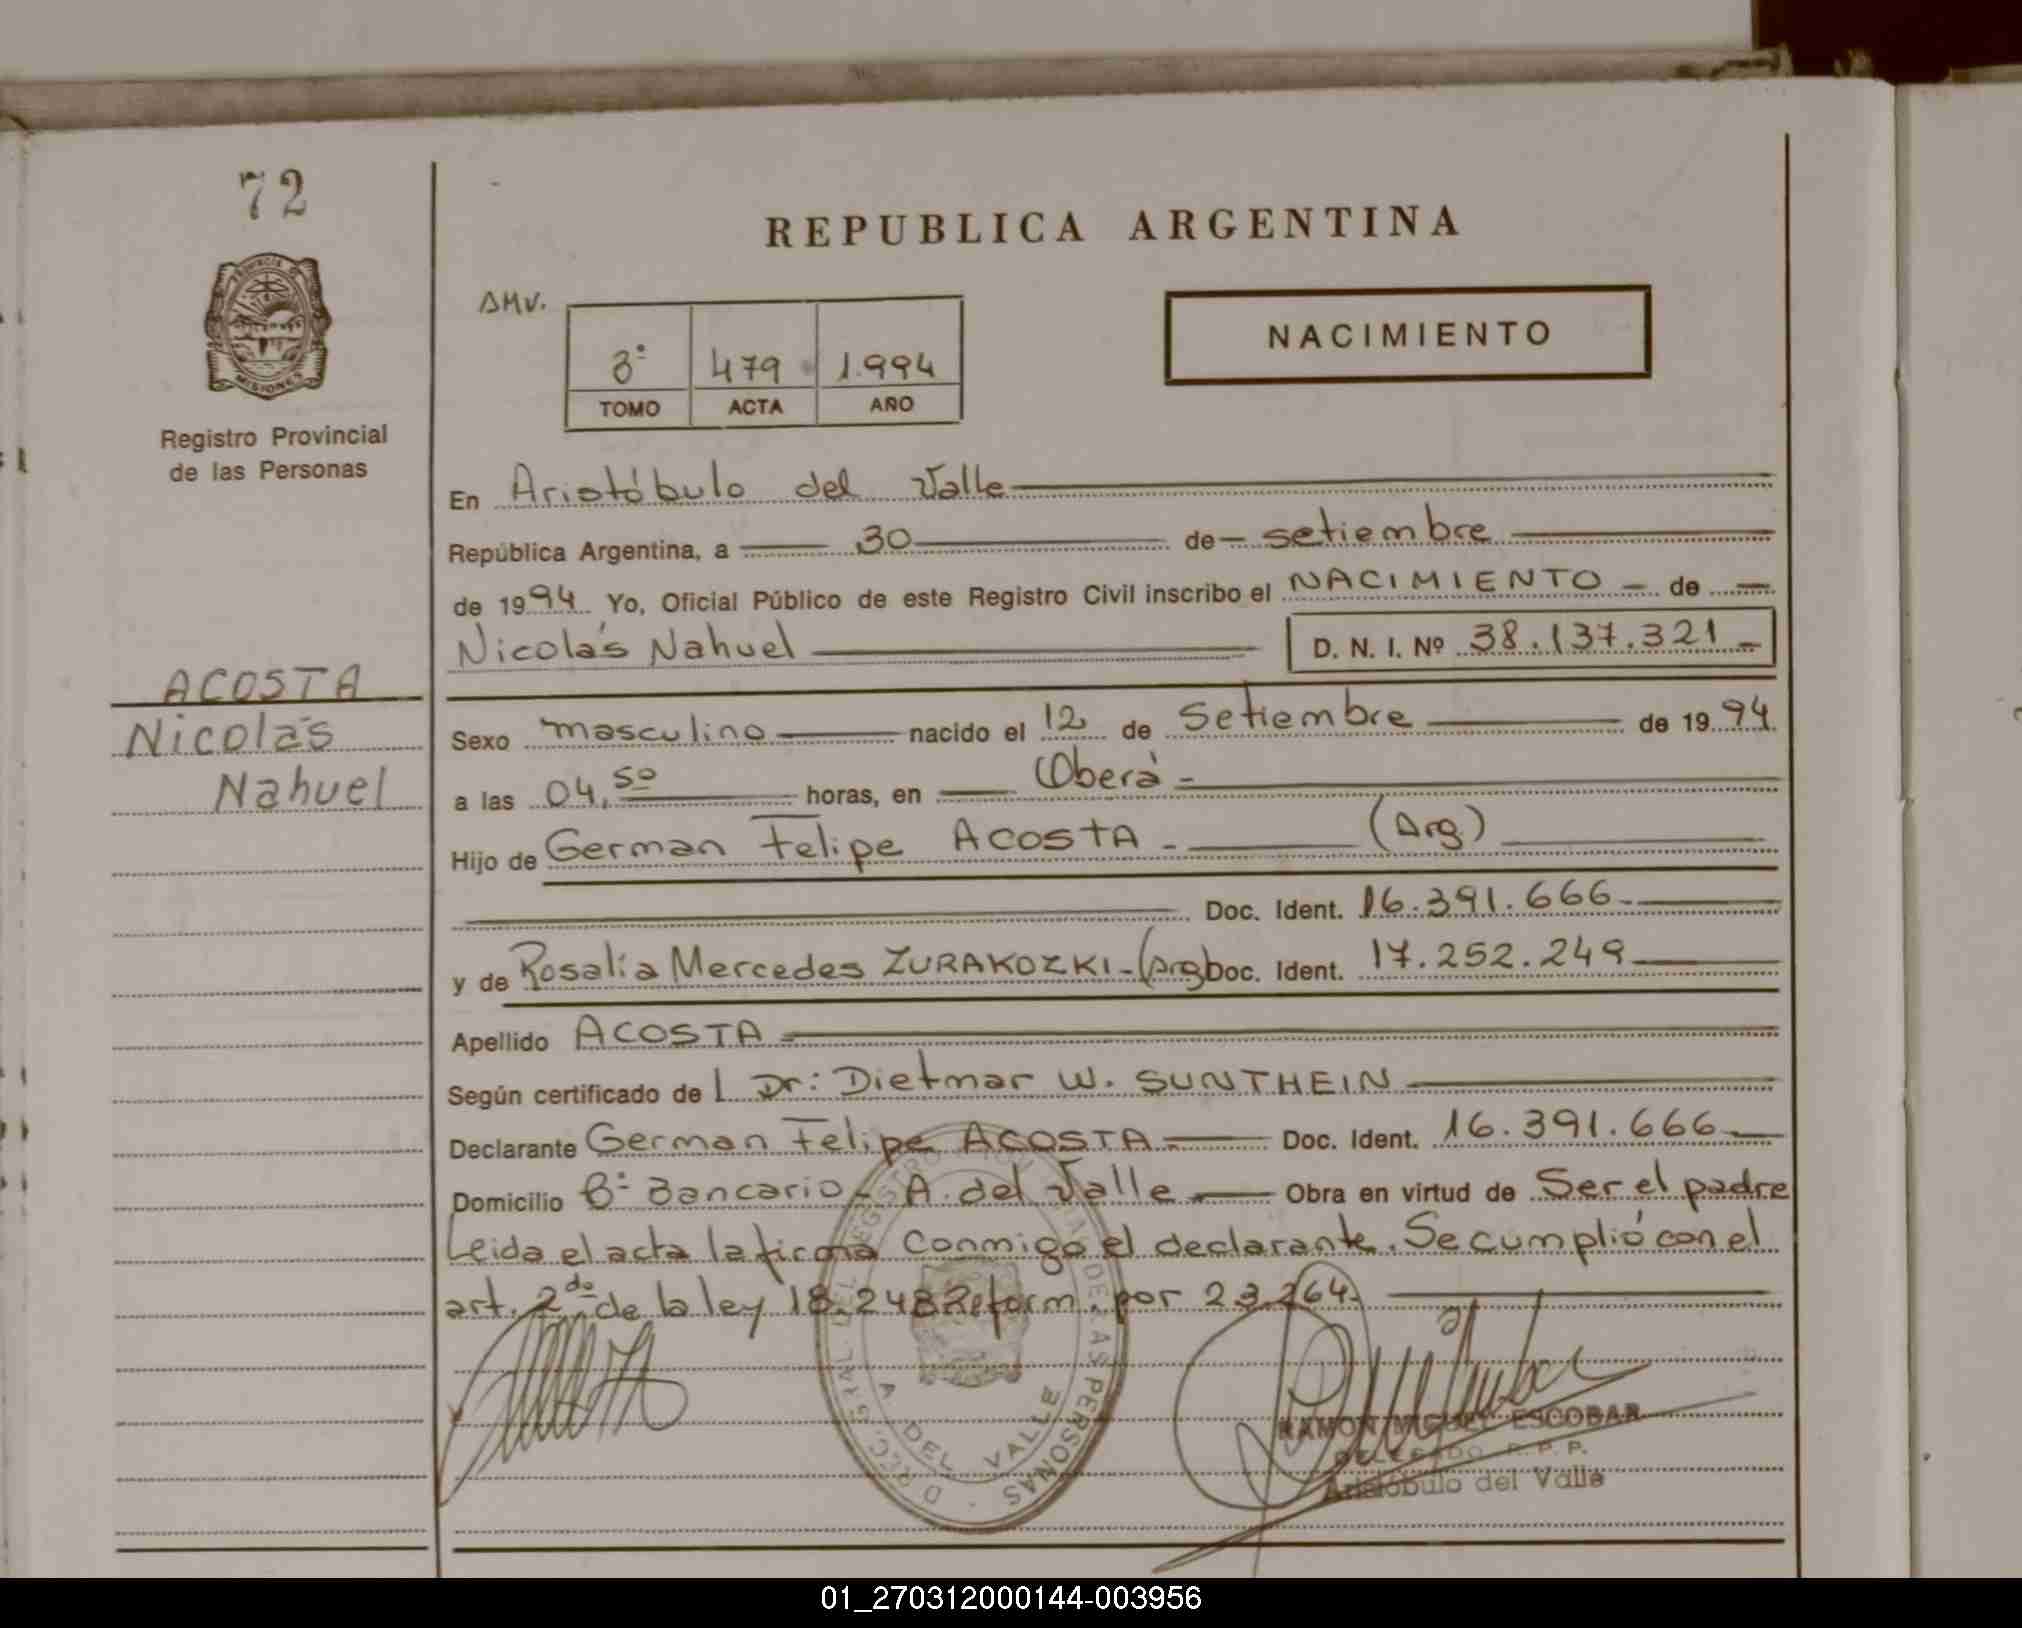 72
REPUBLICA ARGENTINA
PROVINCIA D
MISIONES
Registro Provincial
de las Personas
AMV.
3º 479 1.994
TOMO ACTA AÑO
NACIMIENTO
En Aristóbulo del Valle
República Argentina, a 30 de setiembre
de 1994 Yo, Oficial Público de este Registro Civil inscribo el NACIMIENTO - de
Nicolás Nahuel D. N. I. Nº 38.137.321 -
ACOSTA
Nicolás
Nahuel
Sexo masculino nacido el 12 de Setiembre de 1994
a las 04,50 horas, en Oberá -
Hijo de German Felipe ACOSTA - (Arg)
Doc. Ident. 16.391.666
y de Rosalia Mercedes ZURAKOZKI - (Arg) Doc. Ident. 17.252.249
Apellido ACOSTA
Según certificado de l Dr: Dietmar W. SUNTHEIN
Declarante German Felipe ACOSTA Doc. Ident. 16.391.666
Domicilio Bº Bancario - A. del Valle Obra en virtud de Ser el padre
Leida el acta la firma conmigo el declarante. Se cumplió con el
art. 2do de la ley 18.248 Reform. por 23.264.
DELEGADO R. P. P.
RAMON MIGUEL ESCOBAR
Aristóbulo del Valle
A DEL VALLE
DE LAS PERSONAS
01_270312000144-003956